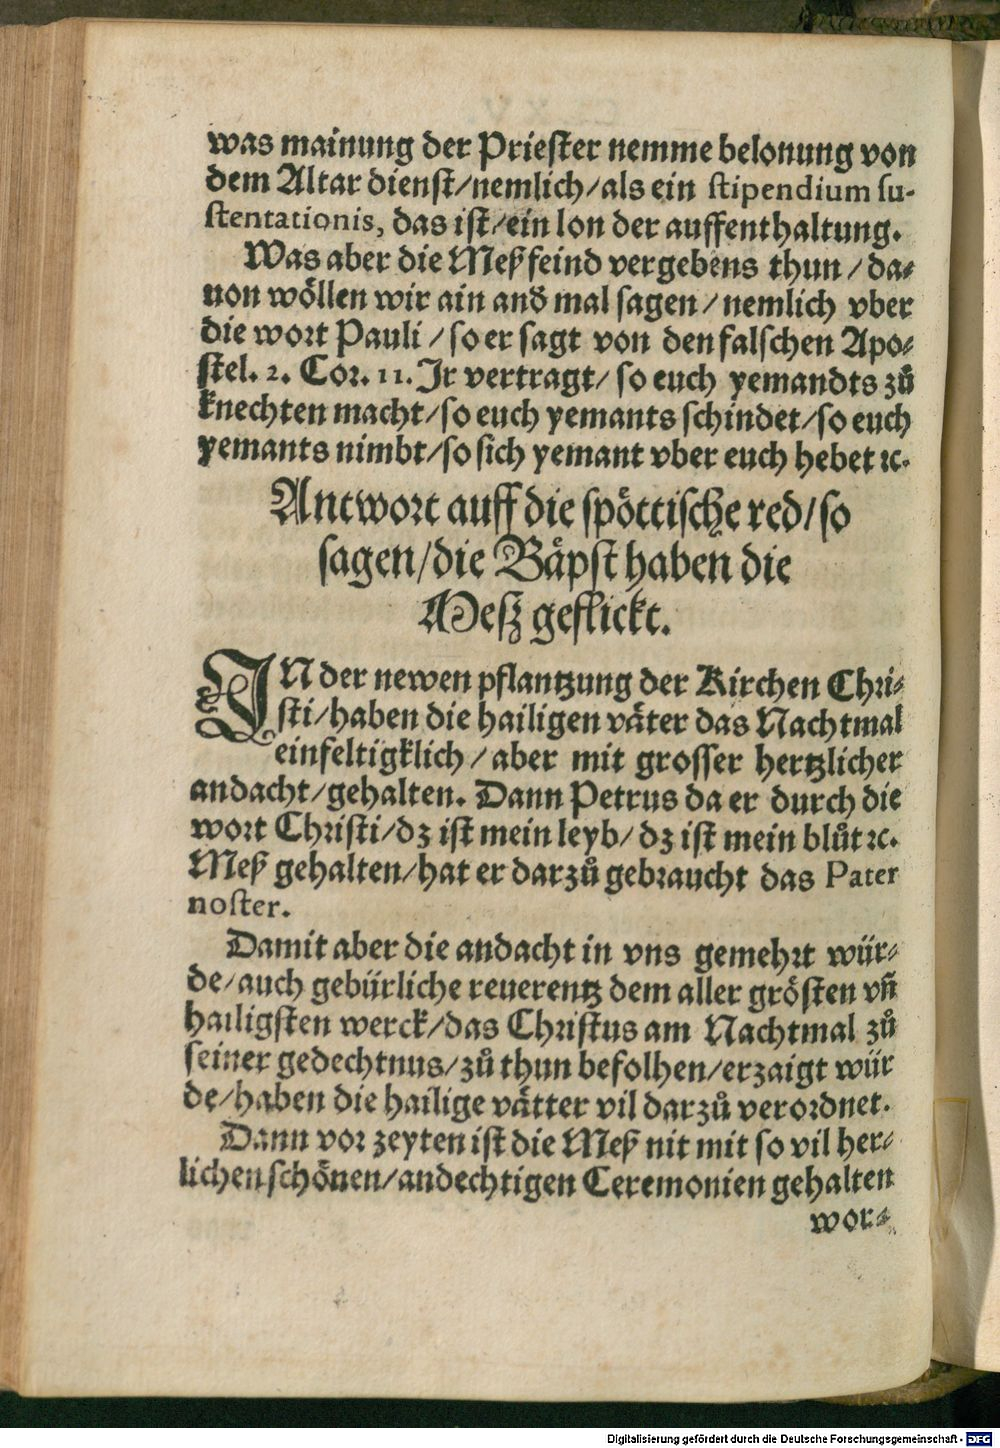 was mainung der Priester nemme belonung von
dem Altar dienst/nemlich/als ein stipendium su-
stentationis, das ist/ein lon der auffenthaltung.
Was aber die Meß feind vergebens thun/da-
uon wöllen wir ain and mal sagen/nemlich vber
die wort Pauli/so er sagt von den falschen Apo-
stel. 2. Cor. 11. Ir vertragt/so euch yemandts zů
knechten macht/so euch yemants schindet/so euch
yemants nimbt/so sich yemant vber euch hebet ꝛc.
Antwort auff die spöttische red/so
sagen/die Bäpst haben die
Mesz geflickt.
IN der newen pflantzung der Kirchen Chri-
sti/haben die hailigen väter das Nachtmal
einfeltigklich/aber mit grosser hertzlicher
andacht/gehalten. Dann Petrus da er durch die
wort Christi/dz ist mein leyb/dz ist mein blůt ꝛc.
Meß gehalten/hat er darzů gebraucht das Pater
noster.
Damit aber die andacht in vns gemehrt wür-
de/auch gebürliche reuerentz dem aller grösten vñ
hailigsten werck/das Christus am Nachtmal zů
seiner gedechtnus/zů thun befolhen/erzaigt wür
de/haben die hailige vätter vil darzů verordnet.
Dann vor zeyten ist die Meß nit mit so vil her-
lichen schönen/andechtigen Ceremonien gehalten
wor-
Digitalisierung gefördert durch die Deutsche Forschungsgemeinschaft - DFG